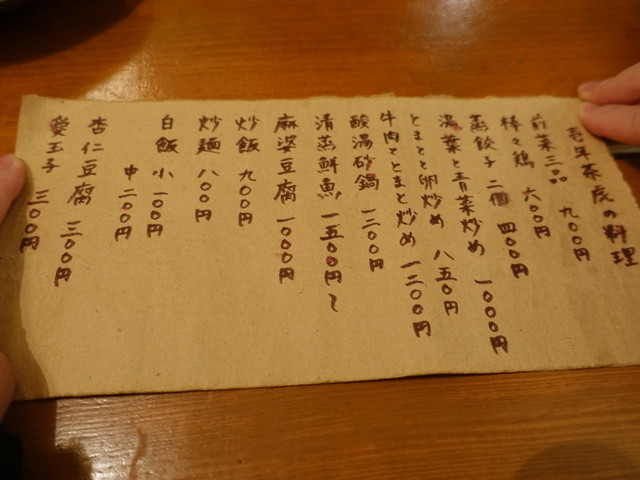 壱年茶虎の料理
前菜三品 九〇〇円
棒々鶏 六〇〇円
蒸餃子 二個 四〇〇円
湯葉と青菜炒め 一〇〇〇円
とまとと卵炒め 八五〇円
牛肉ととまと炒め 一二〇〇円
酸湯砂鍋 一二〇〇円
清蒸鮮魚 一五〇〇円〜
麻婆豆腐 一〇〇〇円
炒飯 九〇〇円
炒麺 八〇〇円
白飯 小 一〇〇円
中 二〇〇円
杏仁豆腐 三〇〇円
愛玉子 三〇〇円